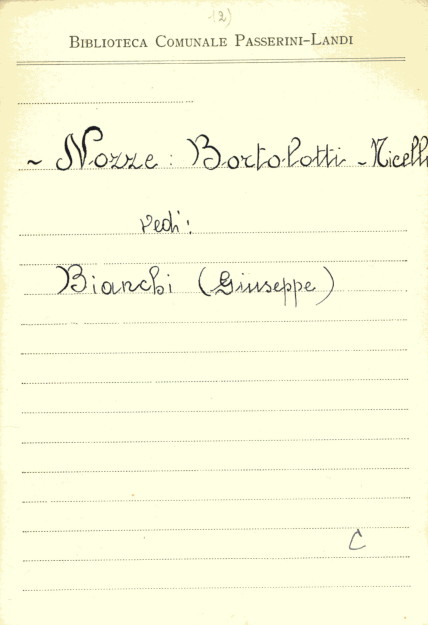 (2)
BIBLIOTECA COMUNALE PASSERINI-LANDI
~ Nozze: Bortolotti - Nicelli
vedi:
Bianchi (Giuseppe)
C